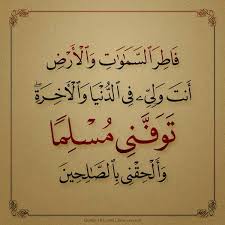 فَاطِرَ ٱلسَّمَٰوَٰتِ وَٱلْأَرْضِ
أَنتَ وَلِيِّۦ فِي ٱلدُّنْيَا وَٱلْءَاخِرَةِۖ
تَوَفَّنِي مُسْلِمًا
وَأَلْحِقْنِي بِٱلصَّٰلِحِينَ